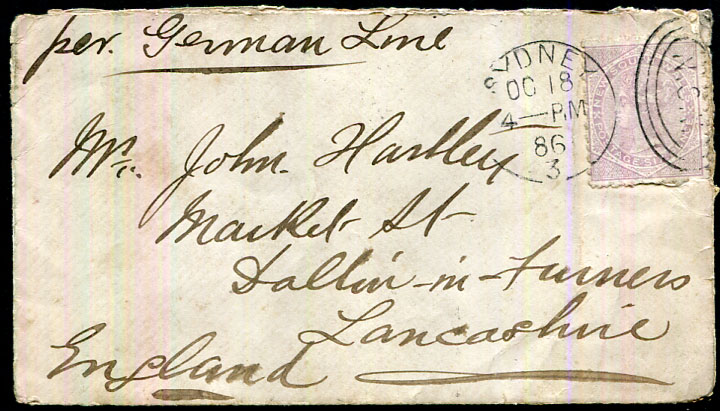 per. German Line
SYDNEY
OC 18
4—P.M
86
3
Mr. John. Hartley
Market St
Dalton-in-Furness
Lancashire
England